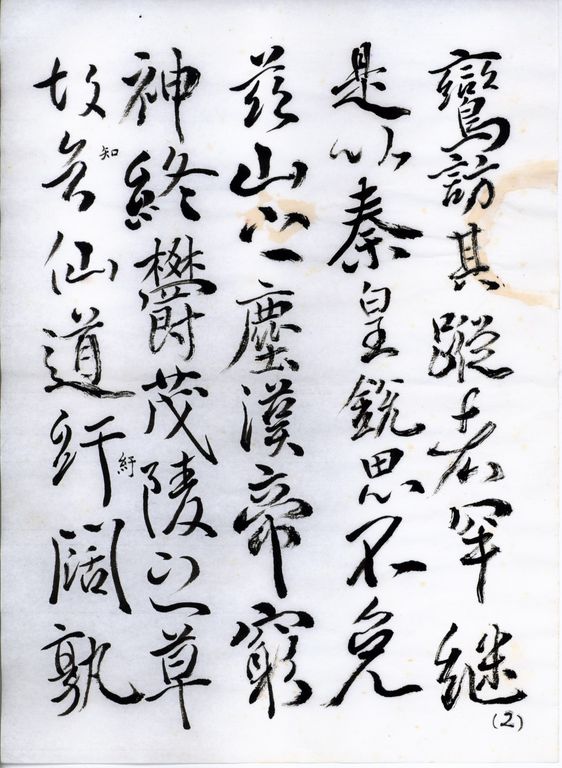 鸞訪其蹤者罕繼
是以秦皇銳思不免
茲山之塵漢帝窮
神終鬱茂陵之草
故知仙道紆闊孰
知
紆
(2)